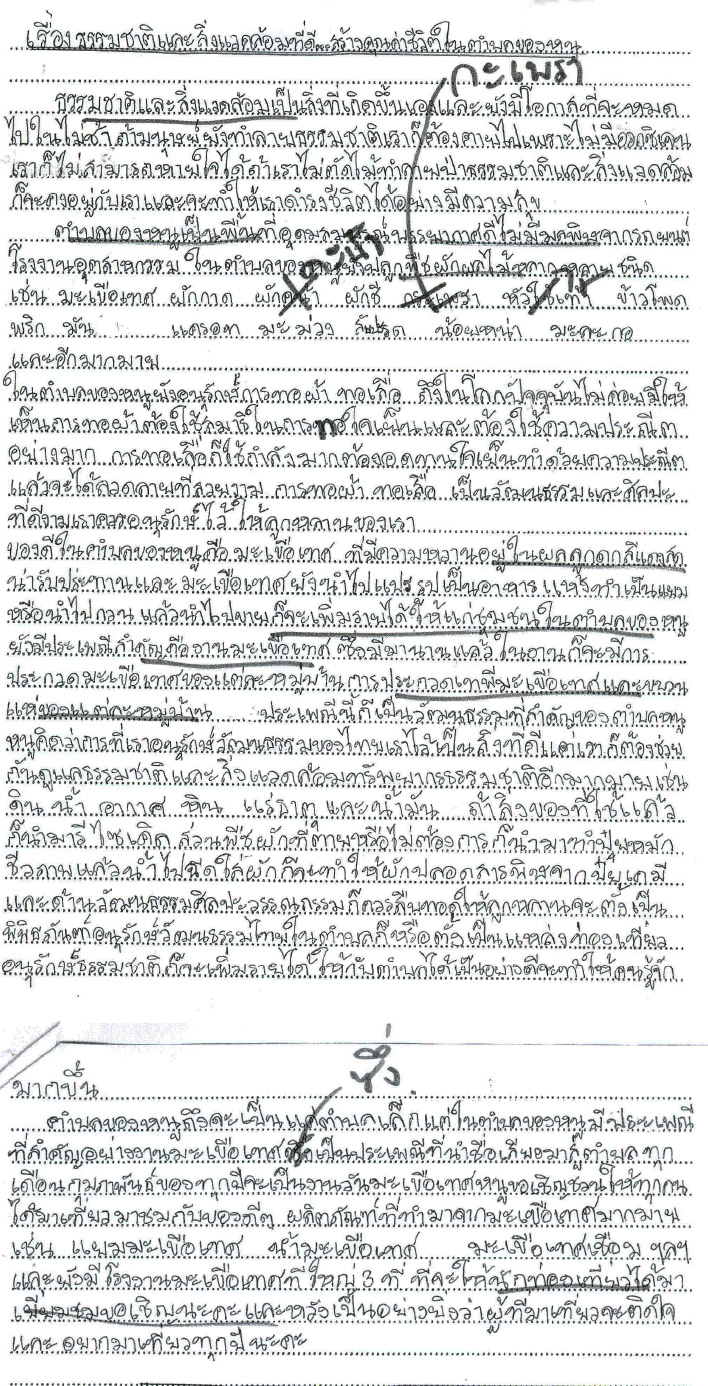 เรื่องธรรมชาติและสิ่งแวดล้อมที่ดี...สร้างคุณค่าชีวิตในตำบลของหนู
กะเพรา
ธรรมชาติและสิ่งแวดล้อมเป็นสิ่งที่เกิดขึ้นเองและยังมีโอกาสที่จะหมด
ไปในไม่ช้าถ้ามนุษย์ยังทำลายธรรมชาติเราก็ต้องตายไปเพราะไม่มีออกซิเจน
เราก็ไม่สามารถหายใจได้ถ้าเราไม่ตัดไม้ทำลายป่าธรรมชาติและสิ่งแวดล้อม
ก็จะคงอยู่กับเราและจะทำให้เราดำรงชีวิตได้อย่างมีความสุข
ตำบลของหนูเป็นพื้นที่อุดมสมบูรณ์บรรยากาศดีไม่มีมลพิษจากรถยนต์
โรงงานอุตสาหกรรม ในตำบลของหนูยังปลูกพืชผักผลไม้หลากหลายชนิด
เช่น มะเขือเทศ ผักกาด ผักคะน้า ผักชี กระเพรา หัวไชเท้า ข้าวโพด
พริก มัน แครอท มะม่วง สับปะรด น้อยหน่า มะละกอ
และอีกมากมาย
ในตำบลของหนูยังอนุรักษ์การทอผ้า ทอเสื่อ ถึงในโลกปัจจุบันไม่ค่อยมีให้
เห็นการทอผ้าต้องใช้สมาธิในการทอใจเย็นและต้องใช้ความประณีต
อย่างมาก การทอเสื่อก็ใช้กำลังมากต้องอดทนใจเย็นทำด้วยความประณีต
แล้วจะได้ลวดลายที่สวยงาม การทอผ้า ทอเสื่อ เป็นวัฒนธรรมและศิลปะ
ที่ดีงามเราควรอนุรักษ์ไว้ให้ลูกหลานของเรา
ของดีในตำบลของหนูคือมะเขือเทศ ที่มีความหวานอยู่ในผลลูกดกสีแดงสด
น่ารับประทานและมะเขือเทศยังนำไปแปรรูปเป็นอาหาร แห้งทำเป็นแยม
หรือนำไปกวน แล้วนำไปขายก็จะเพิ่มรายได้ให้แก่ชุมชนในตำบลของหนู
ยังมีประเพณีสำคัญคืองานมะเขือเทศ ซึ่งมีมานานแล้ว ในงานก็จะมีการ
ประกวดมะเขือเทศของแต่ละหมู่บ้าน การประกวดเทพีมะเขือเทศและขบวน
แห่ของแต่ละหมู่บ้าน ประเพณีนี้ก็เป็นวัฒนธรรมที่สำคัญของตำบลหนู
หนูคิดว่าการที่เราอนุรักษ์วัฒนธรรมของไทยเราไว้เป็นสิ่งที่ดีแต่เราก็ต้องช่วย
กันดูแลธรรมชาติและสิ่งแวดล้อมทรัพยากรธรรมชาติอีกมากมายเช่น
ดิน น้ำ อากาศ หิน แร่ธาตุ และน้ำมัน ถ้าสิ่งของที่ใช้แล้ว
ก็นำมารีไซเคิล ส่วนพืชผักที่ตายหรือไม่ต้องการก็นำมาทำปุ๋ยหมัก
ชีวภาพแล้วนำไปฉีดใส่ผักก็จะทำให้ผักปลอดสารพิษจากปุ๋ยเคมี
และด้านวัฒนธรรมศิลปะวรรณกรรมก็ควรสืบทอดให้ลูกหลานจะตั้งเป็น
พิพิธภัณฑ์อนุรักษ์วัฒนธรรมไทยในตำบลก็หรือตั้งเป็นแหล่งท่องเที่ยว
อนุรักษ์ธรรมชาติก็จะเพิ่มรายได้ให้กับตำบลได้เป็นอย่างดีจะทำให้คนรู้จัก
มากขึ้น ซึ่ง
ตำบลของหนูถึงจะเป็นแค่ตำบลเล็กแต่ในตำบลของหนูมีประเพณี
ที่สำคัญอย่างงานมะเขือเทศ เป็นประเพณีที่นำชื่อเสียงมาสู่ตำบล ทุก
เดือนกุมภาพันธ์ของทุกปีจะเป็นงานวันมะเขือเทศหนูขอเชิญชวนให้ทุกคน
ได้มาเที่ยวมาชมกับของดีๆ ผลิตภัณฑ์ที่ทำมาจากมะเขือเทศมากมาย
เช่น แยมมะเขือเทศ น้ำมะเขือเทศ มะเขือเทศเชื่อม ฯลฯ
และยังมีโรงงานมะเขือเทศที่ใหญ่ 3 ที่ ที่จะให้นักท่องเที่ยวได้มา
เยี่ยมชมขอเชิญนะคะและหวังเป็นอย่างยิ่งว่าผู้ที่มาเที่ยวจะติดใจ
และอยากมาเที่ยวทุกปีนะคะ